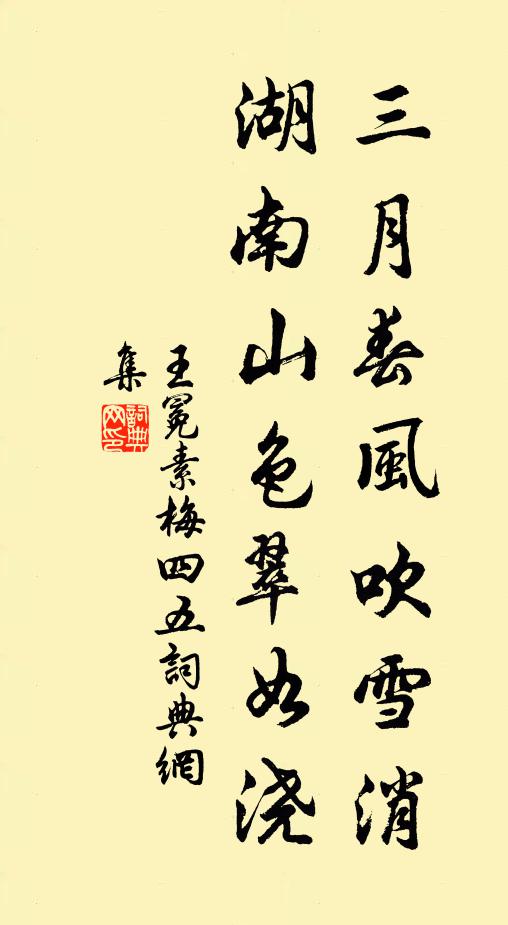 三月春風吹雪消
湖南山色翠如浇
王冕素梅四五詞典網
集
詞典网印